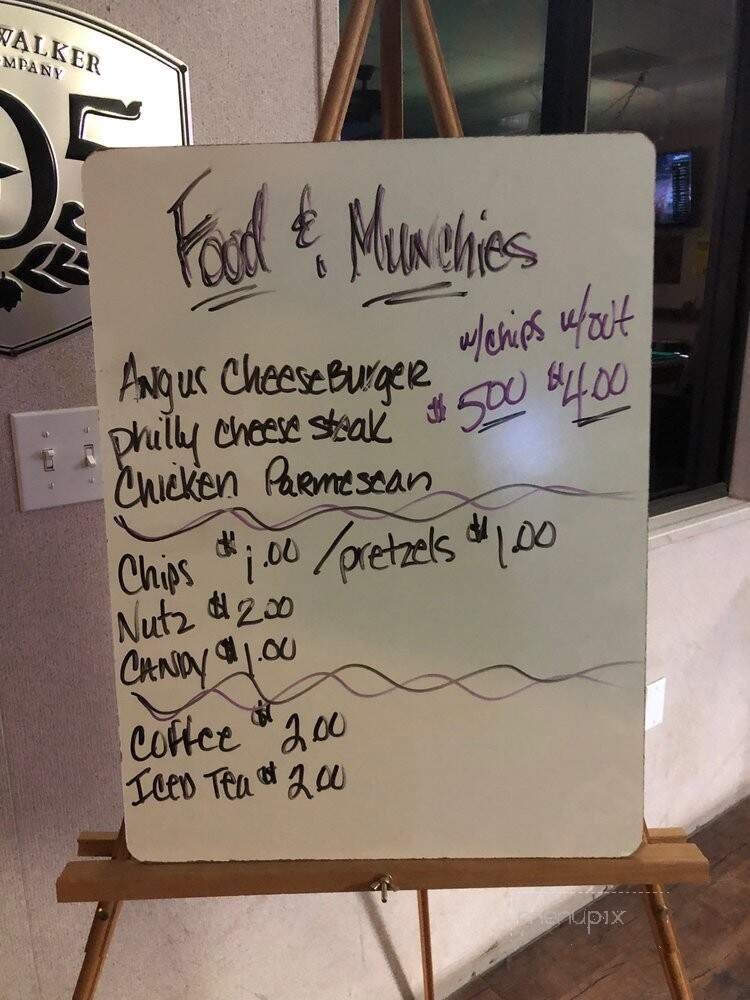 WALKER
MPANY
05
Food & Munchies
w/chips w/out
Angus CheeseBurger
Philly cheese steak $5.00 $4.00
Chicken Parmesean
Chips $1.00 / pretzels $1.00
Nutz $2.00
CANDY $1.00
Coffee $2.00
Iced Tea $2.00
menupix